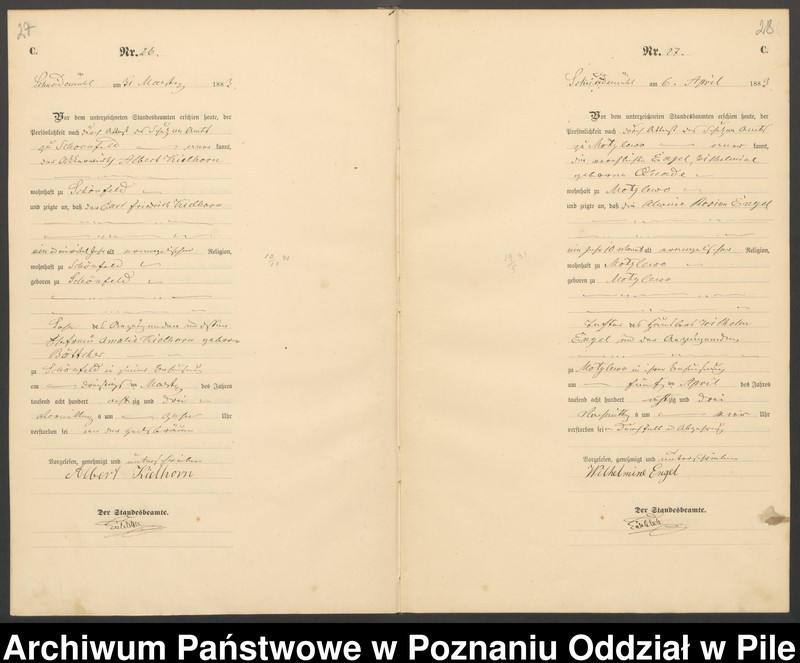 27
C.
Nr. 26.
Schneidemühl am 31 Maerz 1883.
Vor dem unterzeichneten Standesbeamten erschien heute, der
Persönlichkeit nach durch Attest des Schulzen Amts
zu Schoenfeld kannt,
der Albert Kielhorn
wohnhaft zu Schönfeld
und zeigte an, daß der Carl Friedrich Kielhorn
alt evangelischer Religion,
wohnhaft zu Schönfeld
geboren zu Schönfeld
Sohn des Anzeigenden und dessen
Ehefrau Amalie Kielhorn geborene
Böttcher
zu Schönfeld in seiner Behausung
am dreißigsten Maerz des Jahres
tausend acht hundert achtzig und drei
Vormittags um Uhr
verstorben sei
Vorgelesen, genehmigt und unterschrieben
Albert Kielhorn
Der Standesbeamte.
28
Nr. 27. C.
Schneidemühl am 6. April 1883
Vor dem unterzeichneten Standesbeamten erschien heute, der
Persönlichkeit nach durch Attest des Schulzen Amts
zu Motylewo kannt,
die verehelichte Engel, Wilhelmine
geborene
wohnhaft zu Motylewo
und zeigte an, daß die Alwine Engel
ein Jahr 10 Monat alt evangelischer Religion,
wohnhaft zu Motylewo
geboren zu Motylewo
Tochter des Wilhelm
Engel und der Anzeigenden
zu Motylewo in ihrer Behausung
am fünften April des Jahres
tausend acht hundert achtzig und drei
Nachmittags um vier Uhr
verstorben sei
Vorgelesen, genehmigt und unterschrieben
Wilhelmine Engel
Der Standesbeamte.
Archiwum Państwowe w Poznaniu Oddział w Pile